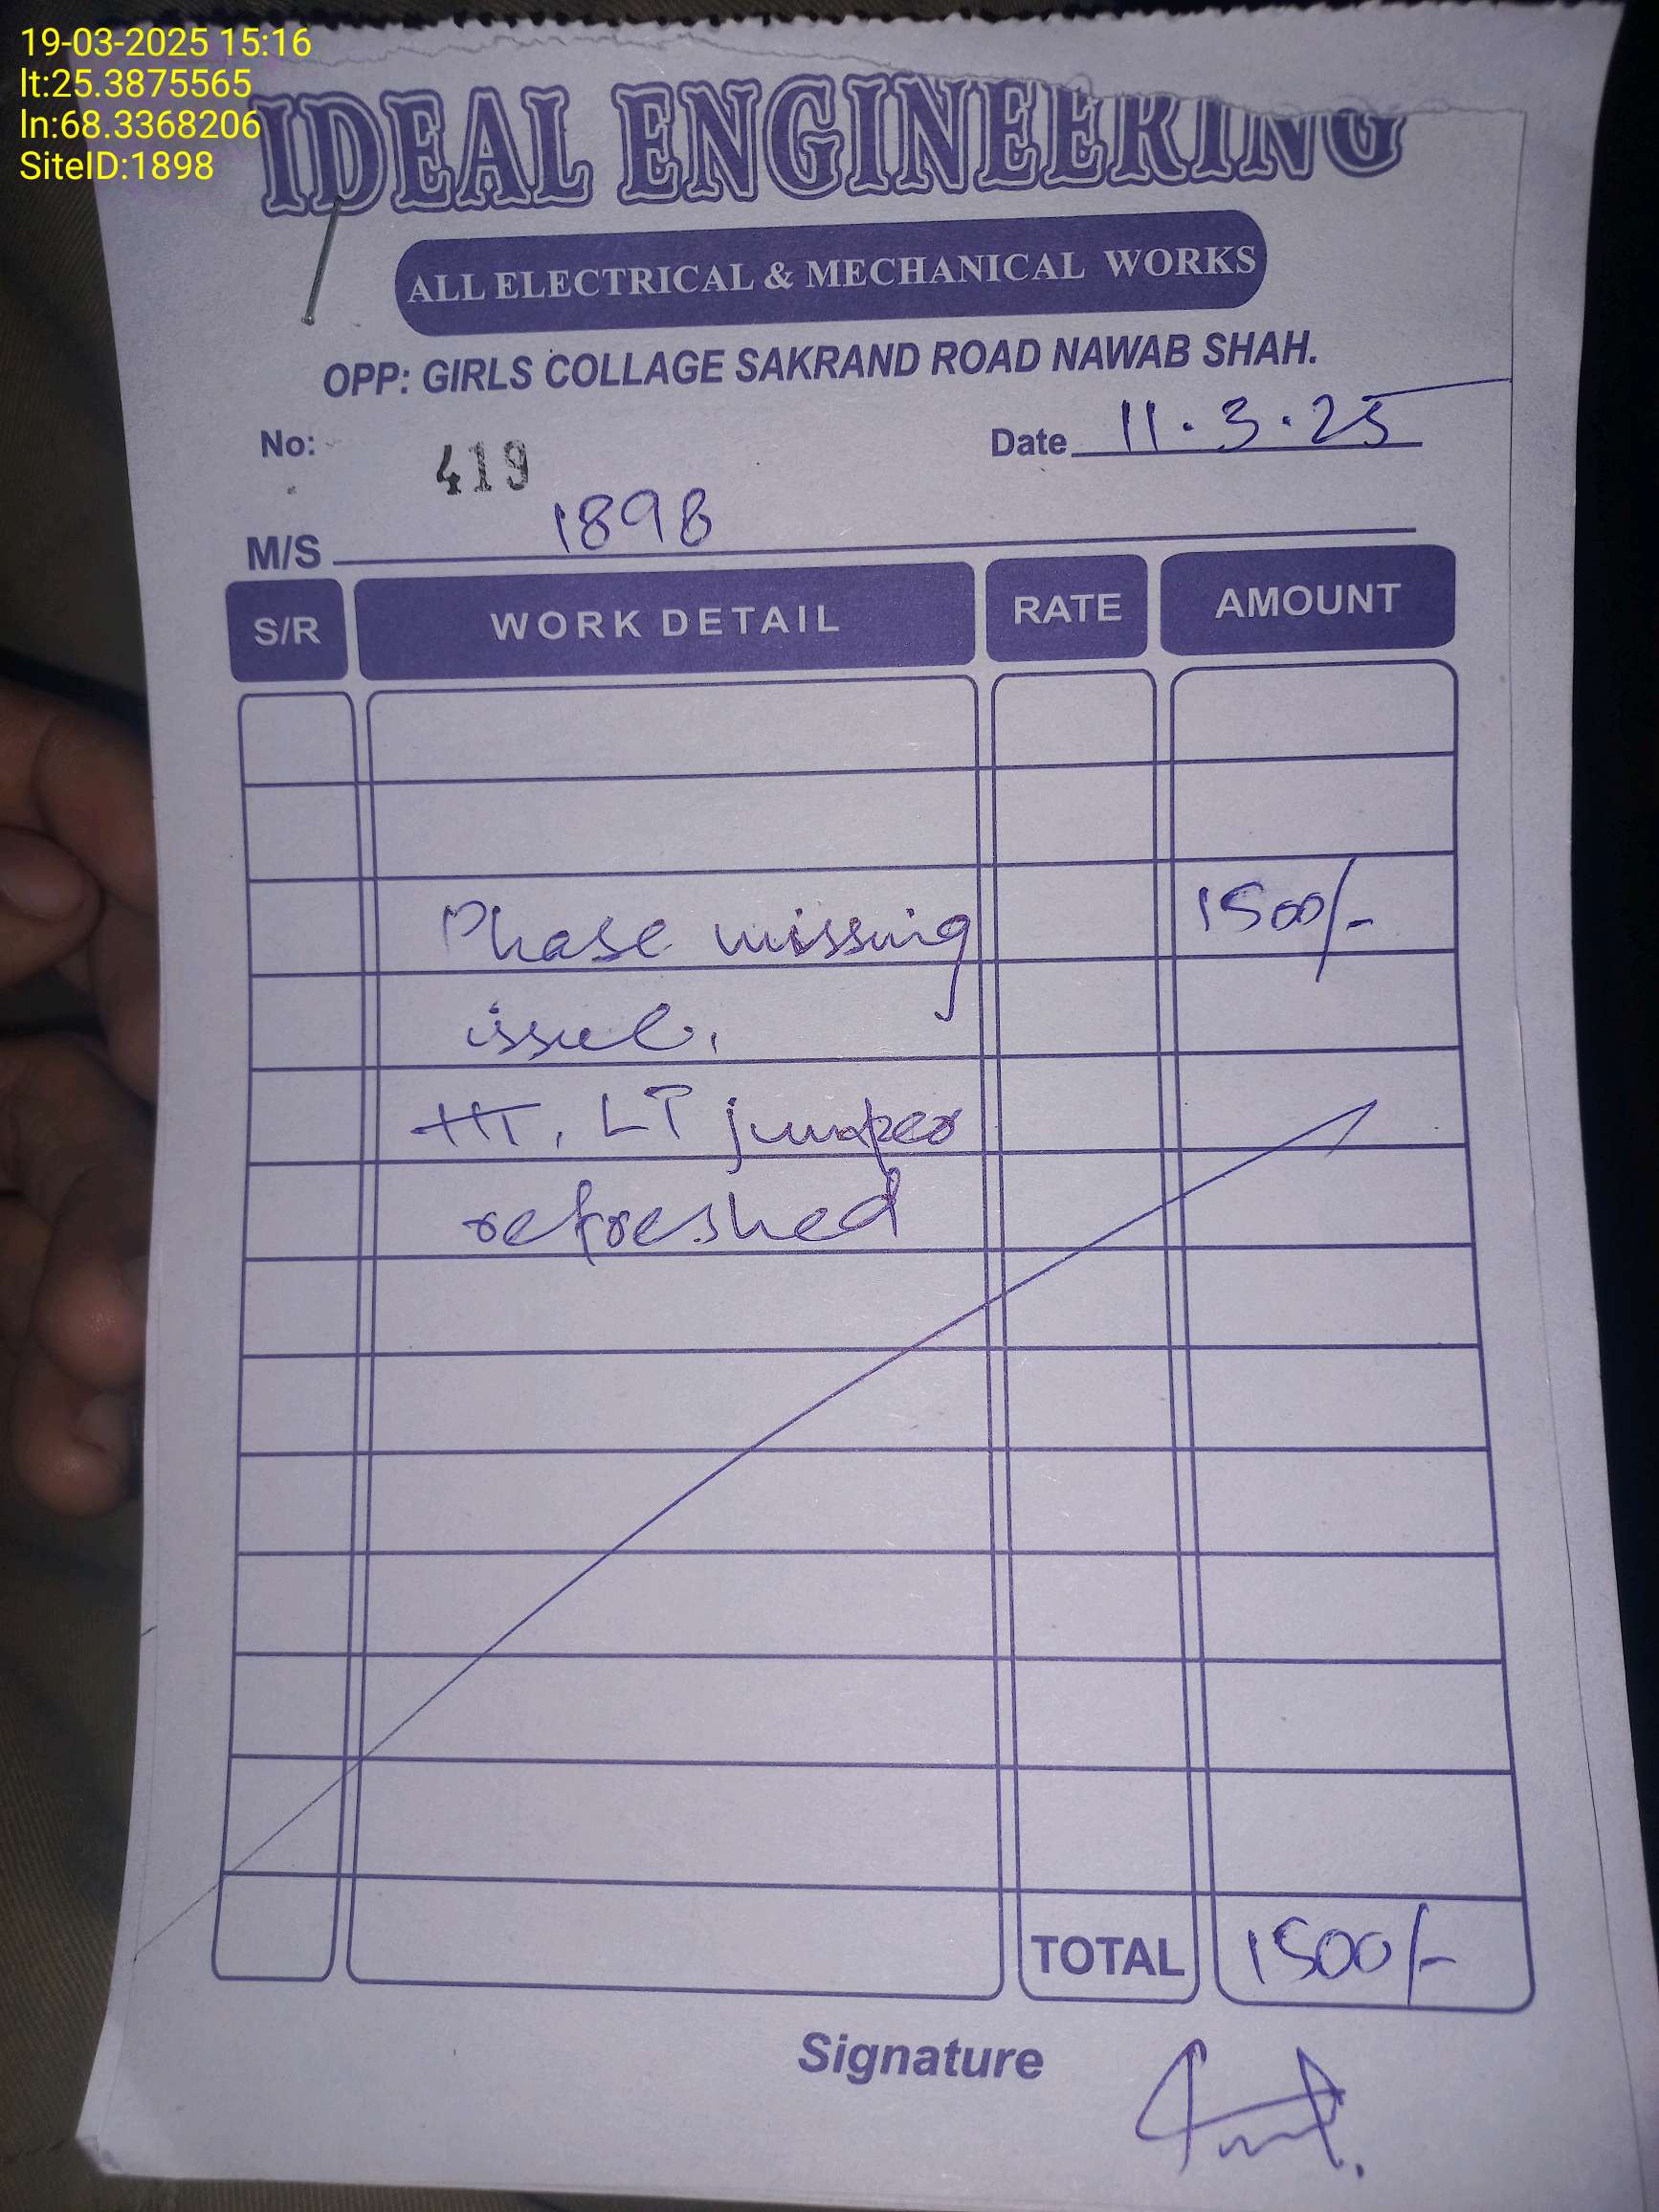 19-03-2025 15:16
lt:25.3875565
ln:68.3368206
SiteID:1898
IDEAL ENGINEERING
ALL ELECTRICAL & MECHANICAL WORKS
OPP: GIRLS COLLAGE SAKRAND ROAD NAWAB SHAH.
No: 419 Date 11.3.25
M/S 1898
S/R WORK DETAIL RATE AMOUNT
Phase missing 1500/-
issue.
HT, LT jumper
refreshed
TOTAL 1500/-
Signature